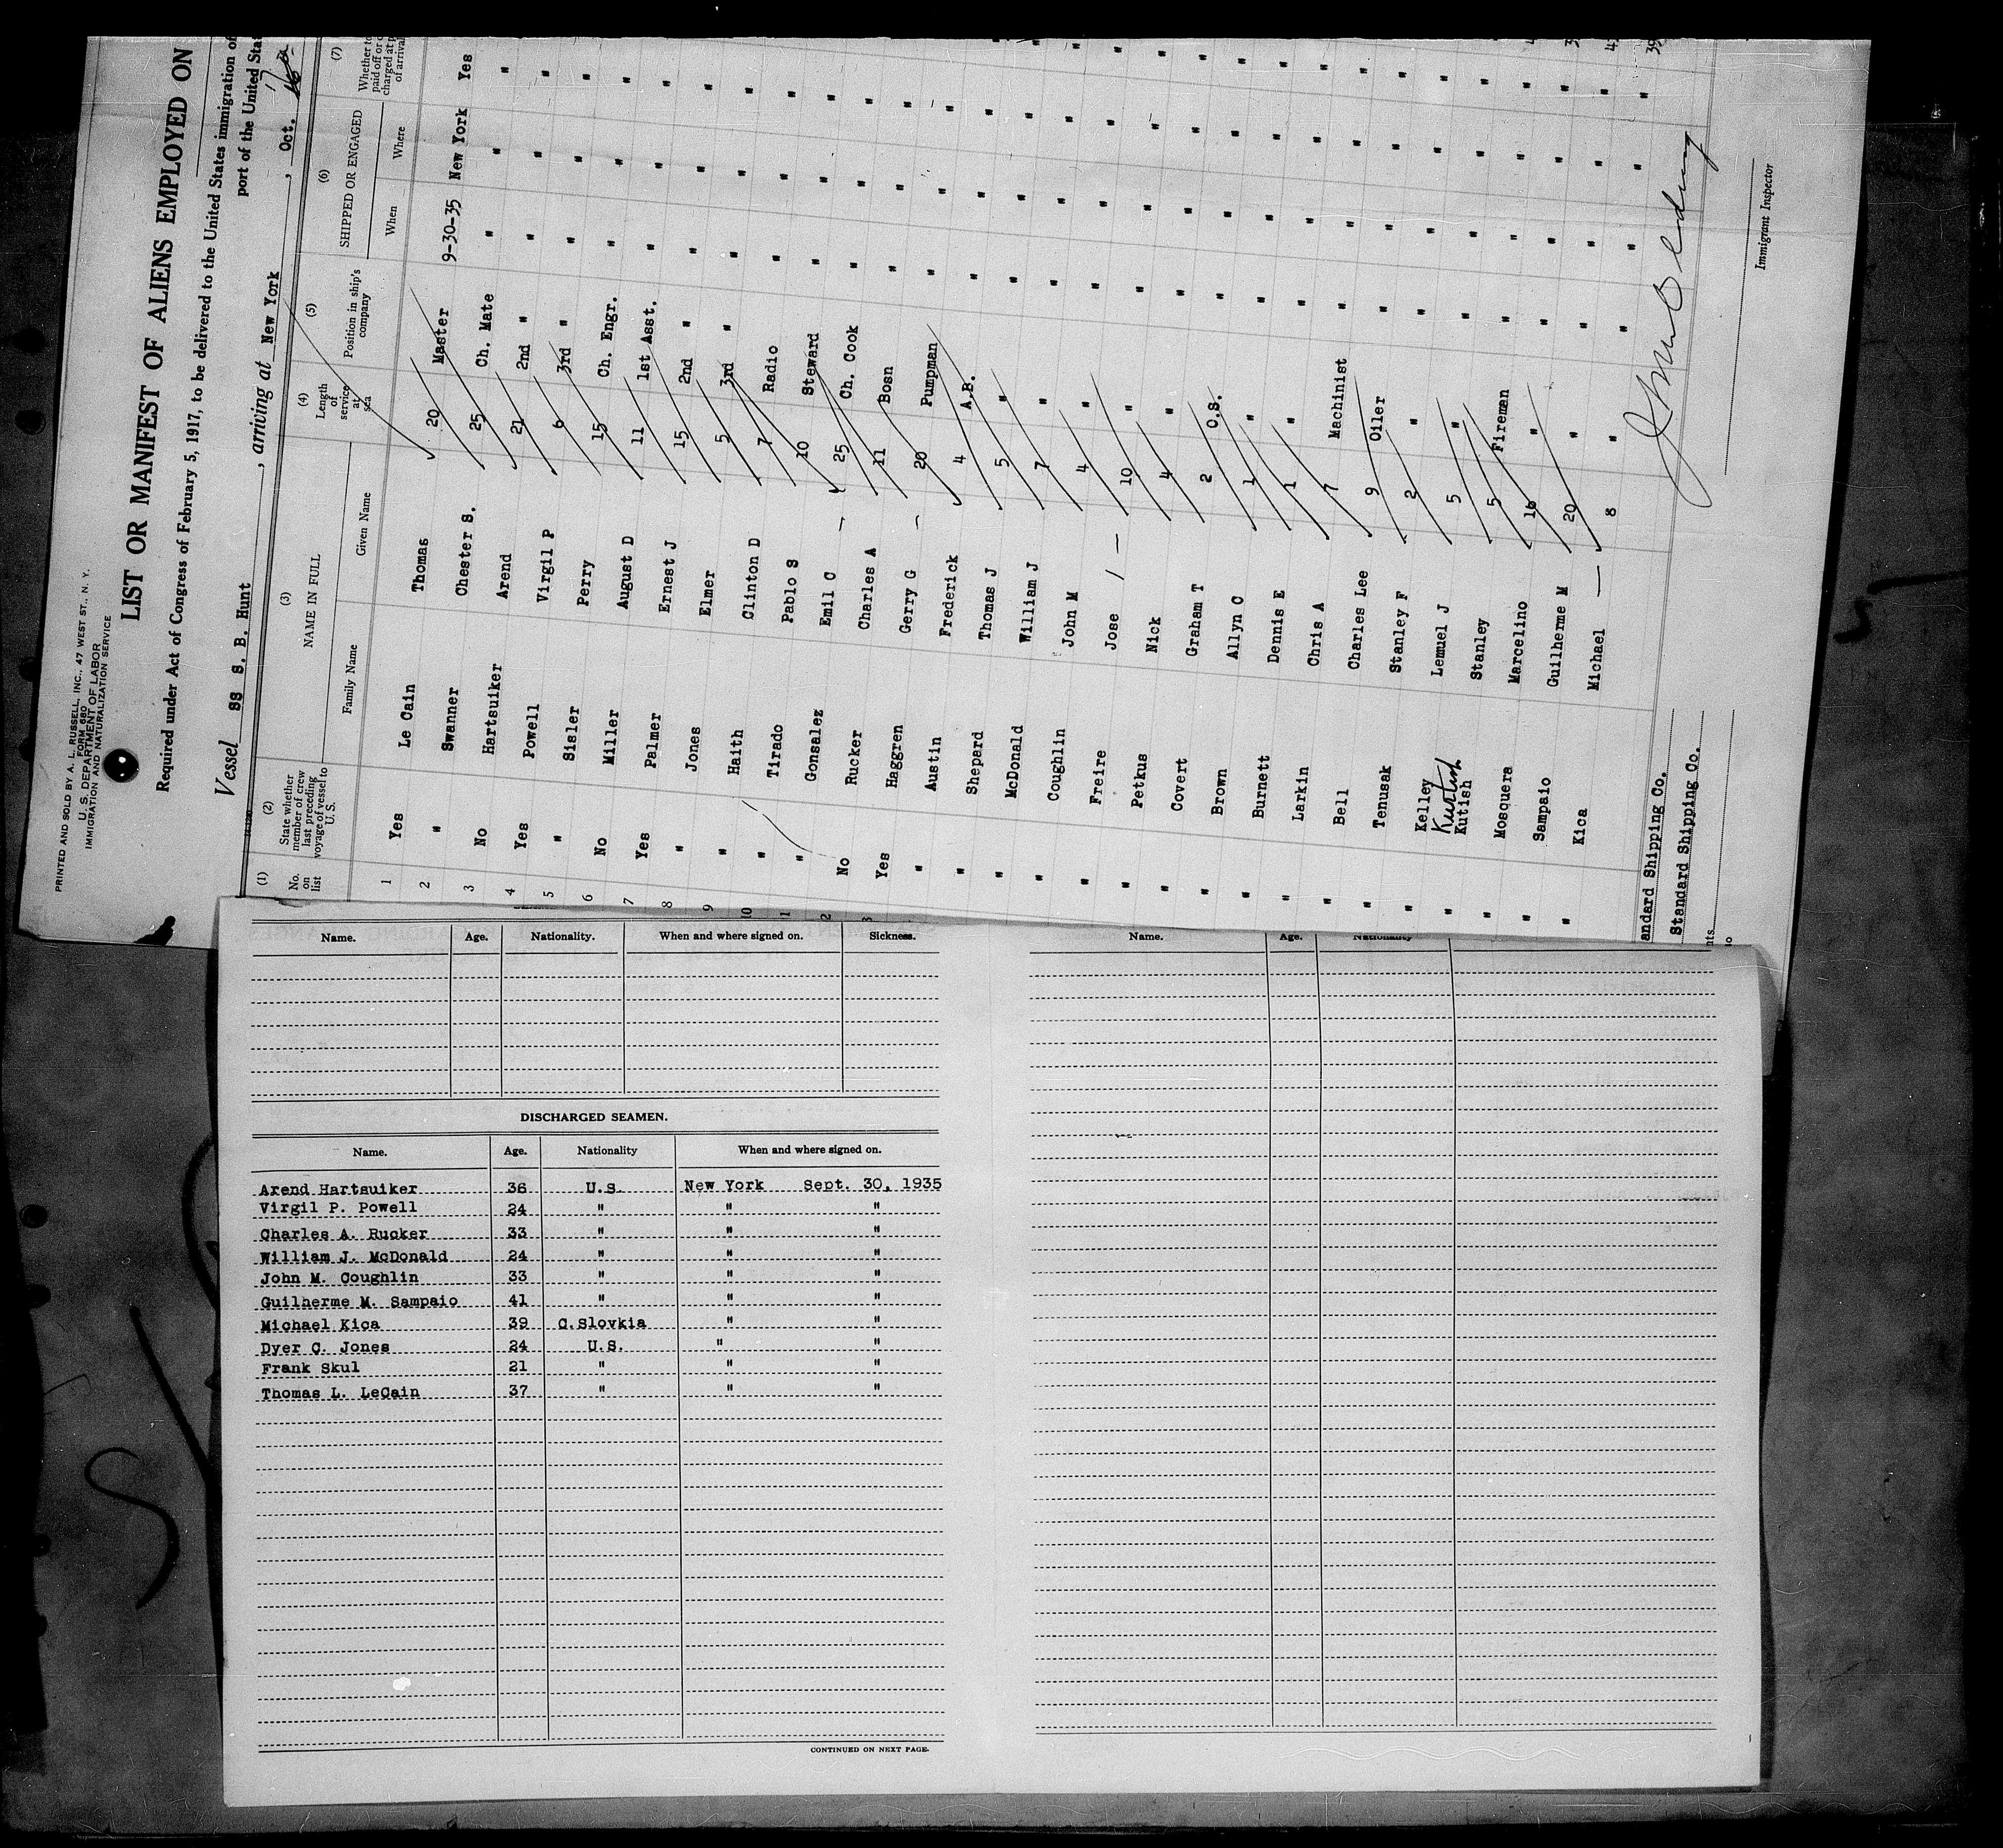 PRINTED AND SOLD BY A. L. RUSSELL, INC., 47 WEST ST., N. Y.
FORM 680
U. S. DEPARTMENT OF LABOR
IMMIGRATION AND NATURALIZATION SERVICE
LIST OR MANIFEST OF ALIENS EMPLOYED ON
Required under Act of Congress of February 5, 1917, to be delivered to the United States immigration of
port of the United Stat
Vessel SS S. B. Hunt , arriving at New York , Oct.
(1) (2) (3) (4) (5) (6) (7)
No. on list State whether member of crew last preceding voyage of vessel to U. S. NAME IN FULL Length of service at sea Position in ship's company SHIPPED OR ENGAGED Whether to paid off or charged at p of arrival
Family Name Given Name When Where
1 Yes Le Cain Thomas 20 Master 9-30-35 New York Yes
2 " Swanner Chester S. 25 Ch. Mate " " "
3 No Hartsuiker Arend 21 2nd " " " "
4 Yes Powell Virgil P 6 3rd " " " "
5 " Sisler Perry 15 Ch. Engr. " " "
6 No Miller August D 11 1st Asst. " " "
7 Yes Palmer Ernest J 15 2nd " " " "
8 " Jones Elmer 5 3rd " " " "
9 " Haith Clinton D 7 Radio " " "
10 " Tirado Pablo S 10 Steward " " "
1 " Gonsalez Emil C 25 Ch. Cook " " "
2 No Rucker Charles A 11 Bosn " " "
3 Yes Haggren Gerry G 20 Pumpman " " "
" Austin Frederick 4 A.B. " " "
" Shepard Thomas J 5 " " " "
" McDonald William J 7 " " " "
" Coughlin John M 4 " " " "
" Freire Jose 10 " " " "
" Petkus Nick 4 " " " "
" Covert Graham T 2 O.S. " " "
" Brown Allyn C 1 " " " "
" Burnett Dennis E 1 " " " "
" Larkin Chris A 7 Machinist " " "
" Bell Charles Lee 9 Oiler " " "
" Tenusak Stanley F 2 " " " "
" Kelley Lemuel J 5 " " " "
Kurtish
" Kutish Stanley 5 Fireman " " "
" Mosquera Marcelino 16 " " " "
" Sampaio Guilherme M 20 " " " "
" Kica Michael 8 " " " "
andard Shipping Co.
Standard Shipping Co.
Immigrant Inspector
Name. Age. Nationality. When and where signed on. Sickness.
DISCHARGED SEAMEN.
Name. Age. Nationality When and where signed on.
Arend Hartsuiker 36 U.S. New York Sept. 30, 1935
Virgil P. Powell 24 " " "
Charles A. Rucker 33 " " "
William J. McDonald 24 " " "
John M. Coughlin 33 " " "
Guilherme M. Sampaio 41 " " "
Michael Kica 39 C.Slovkia " "
Dyer C. Jones 24 U.S. " "
Frank Skul 21 " " "
Thomas L. LeCain 37 " " "
CONTINUED ON NEXT PAGE.
Name. Age. Nationality